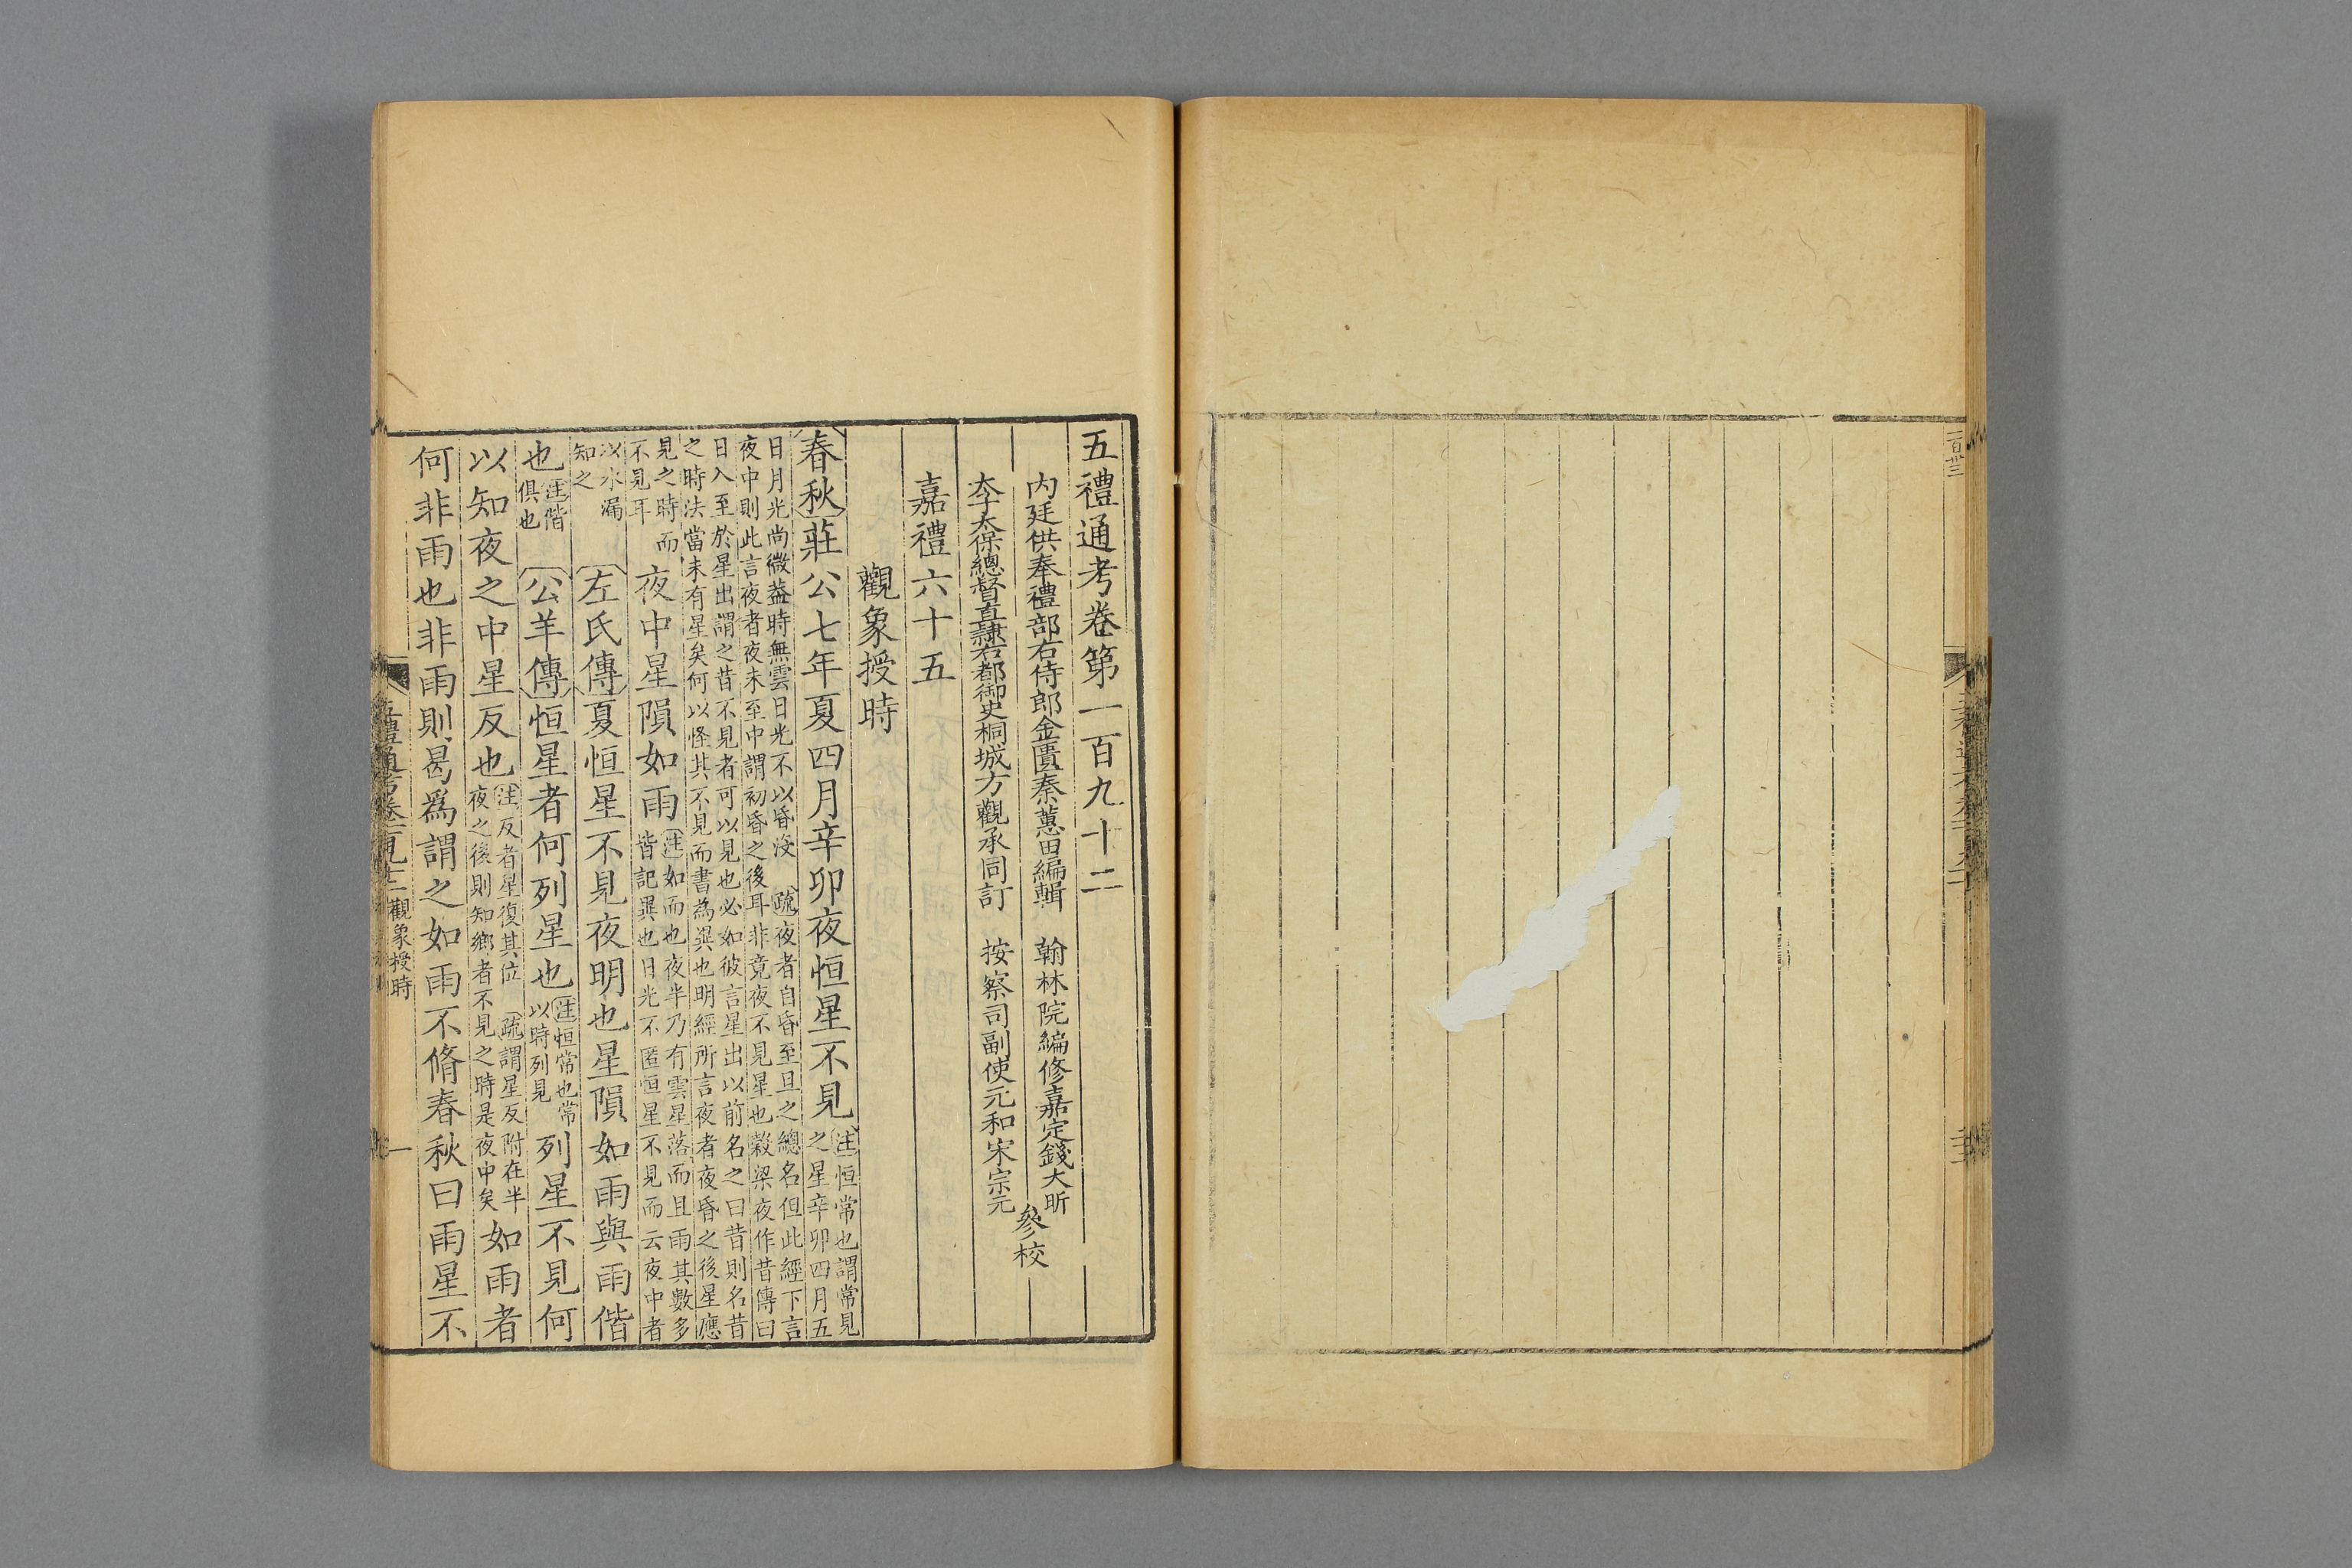 五禮通考卷第一百九十二
內廷供奉禮部右侍郎金匱秦蕙田編輯　翰林院編修嘉定錢大昕
太子太保總督直隸右都御史桐城方觀承同訂　按察司副使元和宋宗元
參校
嘉禮六十五
觀象授時
春秋莊公七年夏四月辛卯夜恒星不見
注恒常也謂常見
之星辛卯四月五
日月光尚微蓋時無雲日光不以昏没　疏夜者自昏至旦之總名但此經下言
夜中則此言夜者夜未至中謂初昏之後耳非竟夜不見星也穀梁夜作昔傳曰
日入至於星出謂之昔不見者可以見也必如彼言星出以前名之曰昔則名昔
之時法當未有星矣何以怪其不見而書為異也明經所言夜者夜昏之後星應
見之時而
不見耳
夜中星隕如雨
注如而也夜半乃有雲星落而且雨其數多
皆記異也日光不匿恒星不見而云夜中者
以水漏
知之
左氏傳夏恒星不見夜明也星隕如雨與雨偕
也
注偕
俱也
公羊傳恒星者何列星也
注恒常也常
以時列見
列星不見何
以知夜之中星反也
注反者星復其位　疏謂星反附在半
夜之後則知鄉者不見之時是夜中矣
如雨者
何非雨也非雨則曷爲謂之如雨不脩春秋曰雨星不
觀象授時
一
一百卅三